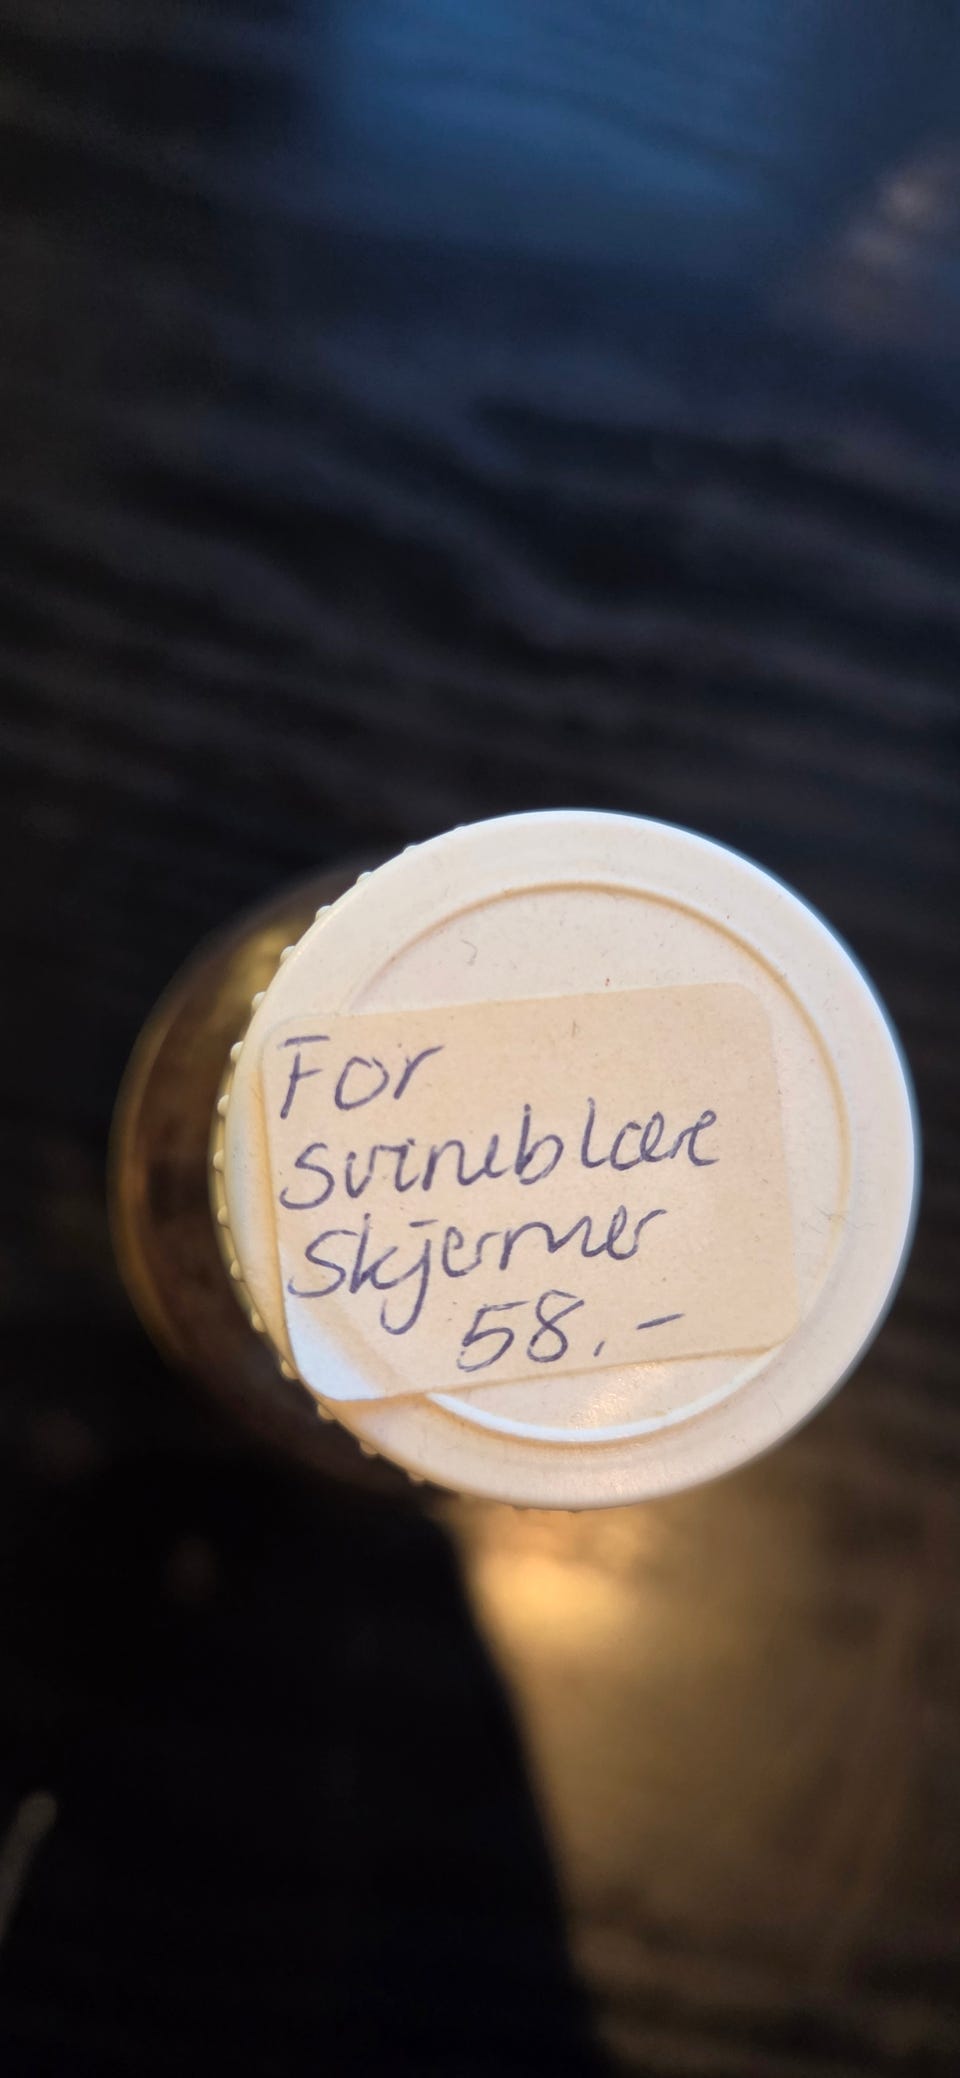 For
svineblære
Skjermer
58.-